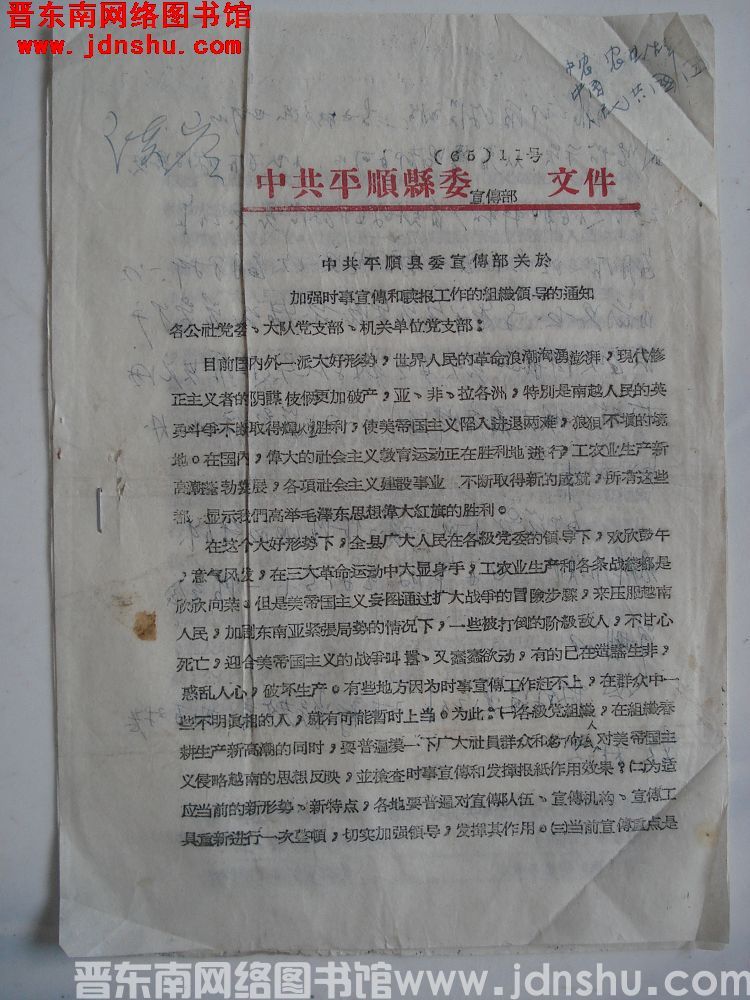 晋东南网络图书馆
www.jdnshu.com
(65)11号
中共平順縣委宣傳部 文件
中共平順县委宣傳部关於
加强时事宣傳和读报工作的组織領导的通知
各公社党委、大队党支部、机关单位党支部：
目前国内外一派大好形势，世界人民的革命浪潮洶湧澎湃，现代修
正主义者的阴謀伎倆更加破产，亚、非、拉各洲，特别是南越人民的英
勇斗争不断取得輝煌胜利，使美帝国主义陷入进退两难，狼狽不堪的境
地。在国内，偉大的社会主义教育运动正在胜利地进行，工农业生产新
高潮蓬勃发展，各項社会主义建設事业 不断取得新的成就，所有这些
都 显示我們高举毛泽东思想偉大紅旗的胜利。
在这个大好形势下，全县广大人民在各級党委的領导下，欢欣鼓午
，意气风发，在三大革命运动中大显身手，工农业生产和各条战綫都是
欣欣向荣。但是美帝国主义妄图通过扩大战争的冒險步驟，来压服越南
人民，加剧东南亚紧張局势的情况下，一些被打倒的阶級敌人，不甘心
死亡，迎合美帝国主义的战争叫囂、又蠢蠢欲动，有的已在造謠生非，
惑乱人心，破坏生产。有些地方因为时事宣傳工作赶不上，在群众中一
些不明眞相的人，就有可能暂时上当。为此：㈠各級党組織，在組織春
耕生产新高潮的同时，要普遍摸一下广大社員群众和各阶层人对美帝国主
义侵略越南的思想反映，並檢查时事宣傳和发揮报紙作用效果？㈡为适
应当前的新形势、新特点，各地要普遍对宣傳队伍、宣傳机构、宣傳工
具重新进行一次整頓，切实加强領导，发揮其作用。㈢当前宣傳重点是
晋东南网络图书馆www.jdnshu.com